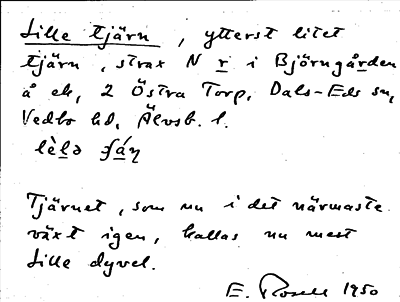 Lille tjärn, ytterst litet
tjärn, strax N r i Björngården
å ek, 2 Östra Torp, Dals-Eds sn,
Vedbo hd, Älvsb. l.
Tjärnet, som nu i det närmaste
växt igen, kallas nu mest
Lille dyvel.
E. Rosell 1950